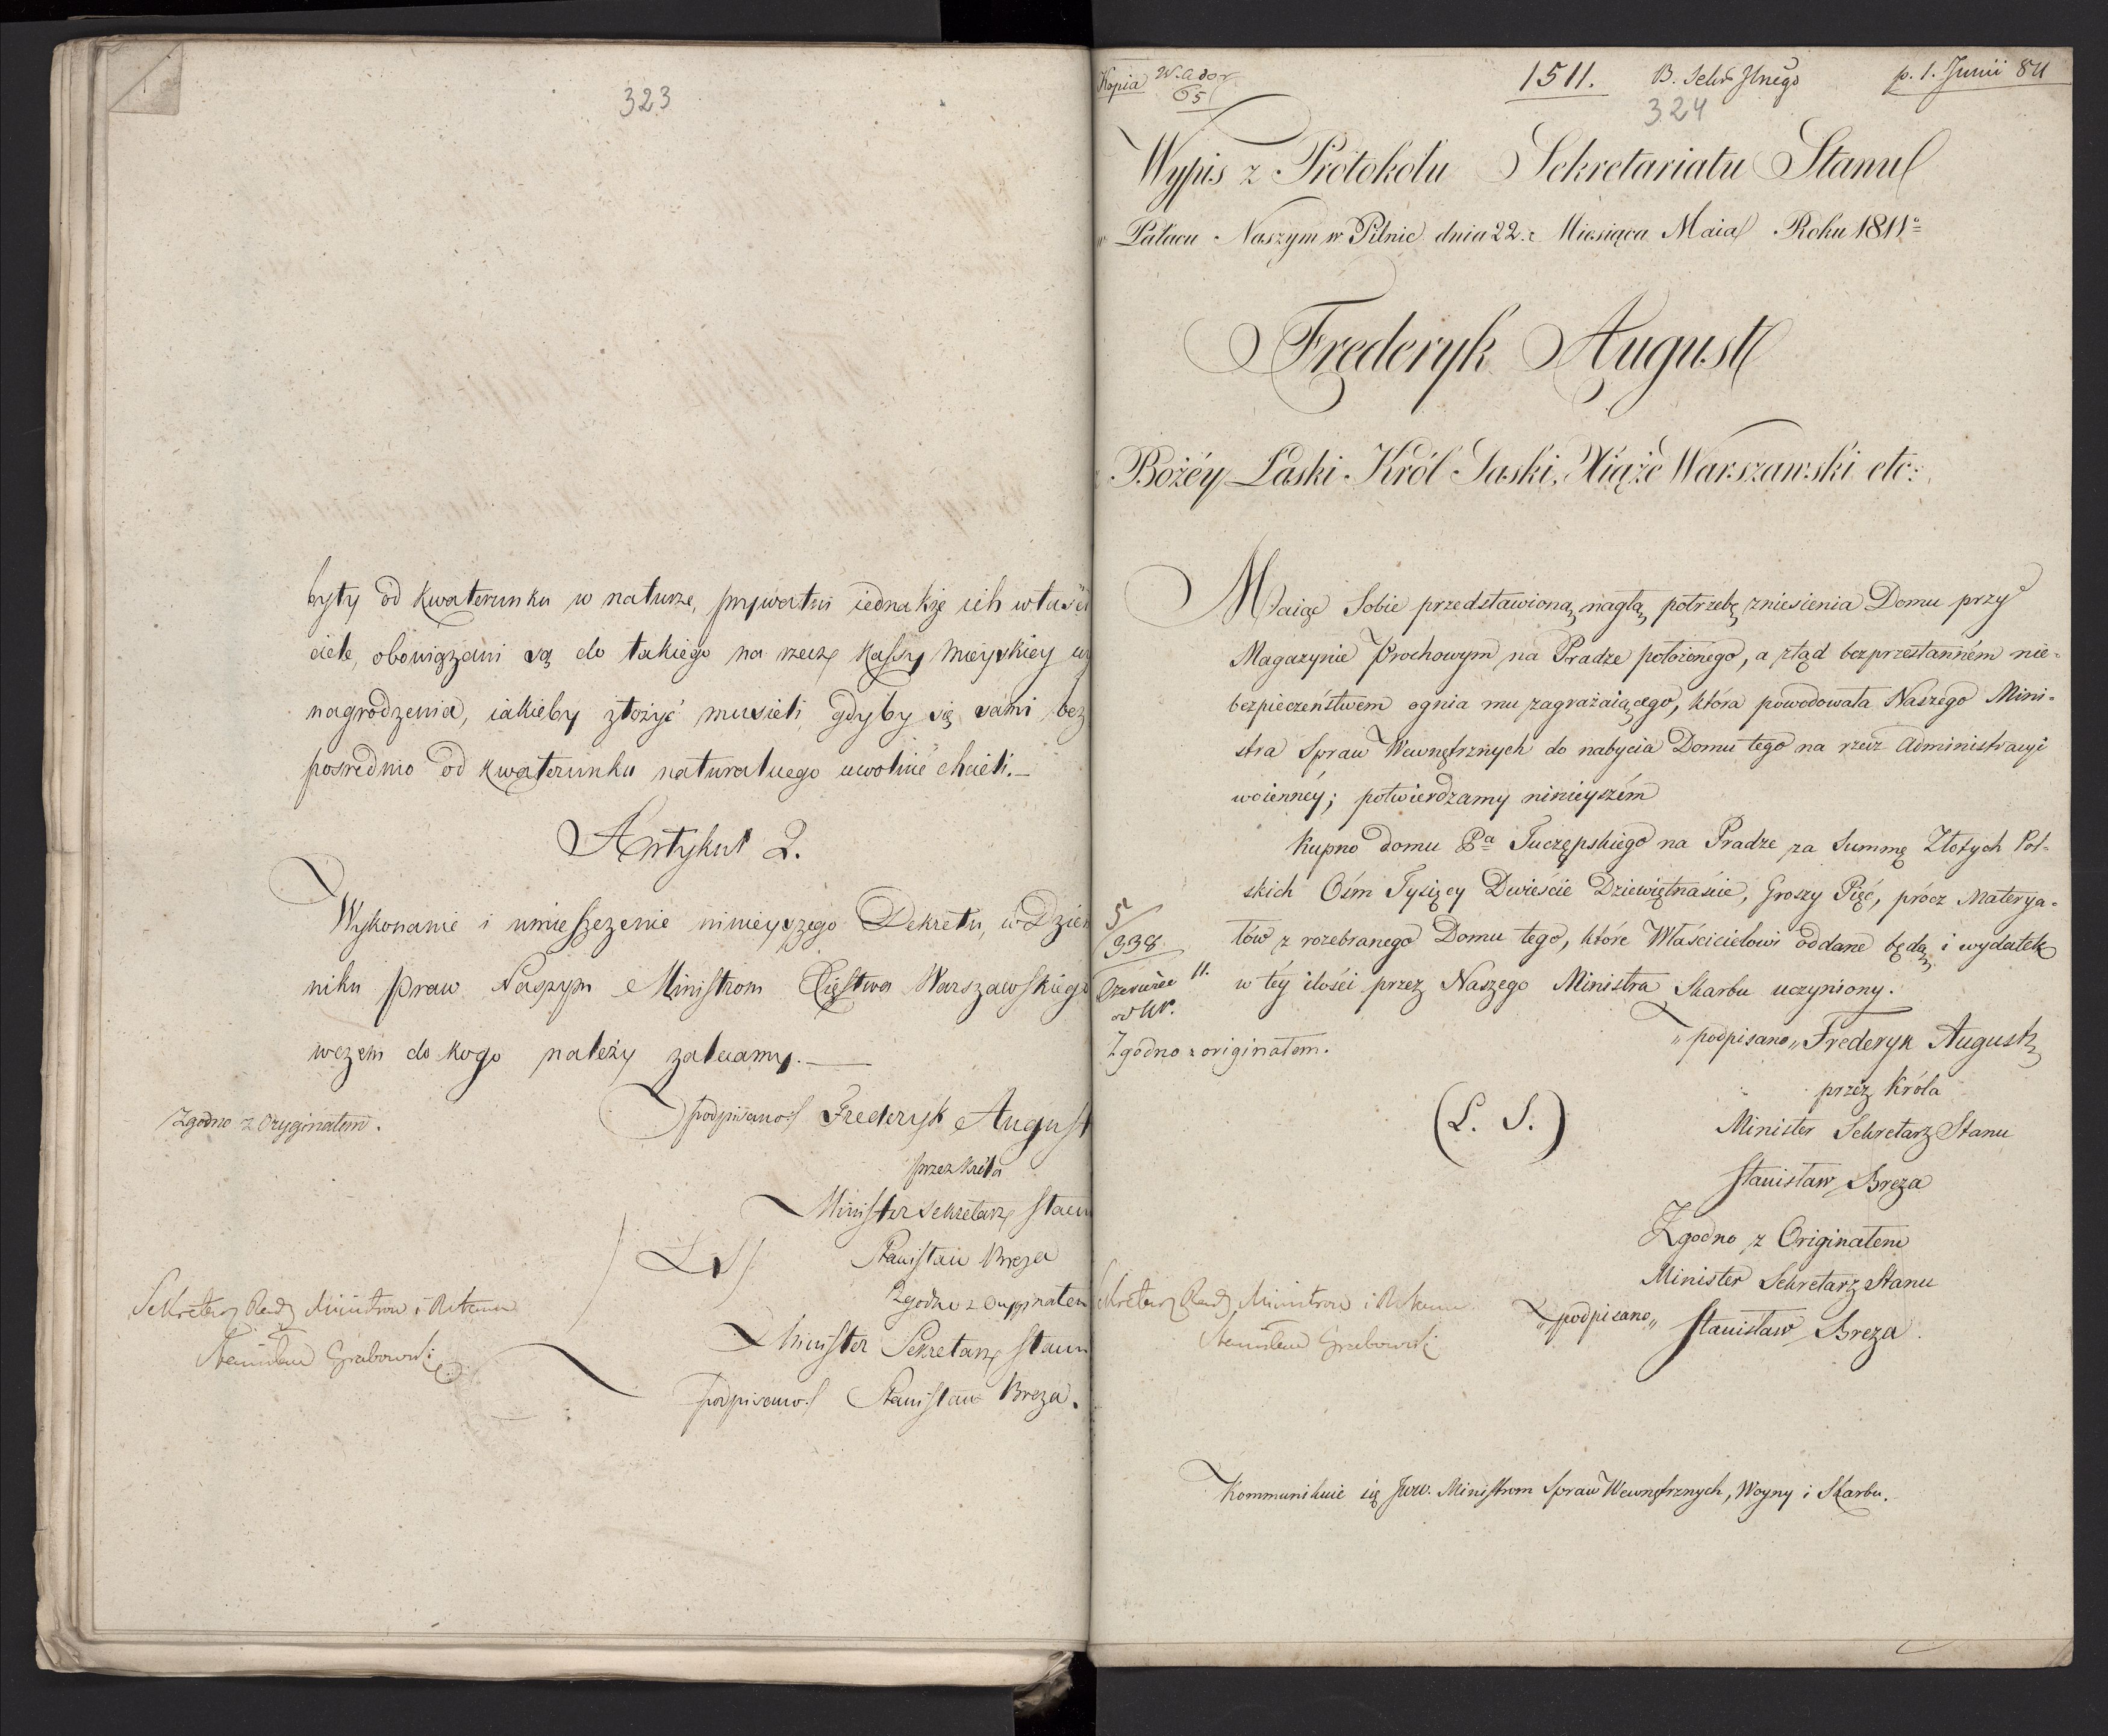 323
były od kwaterunku w naturze, prywatni iednakże ich właści
ciele, obowiązani są do takiego na rzecz kassy mieyskiey wy
nagrodzenia, iakieby złożyć musieli, gdyby się sami bez
pośrednio od kwaterunku naturalnego uwolnić chcieli.—
Artykuł 2.
Wykonanie i umieszczenie ninieyszego Dekretu, w Dzien
niku praw Naszym Ministrom Xięstwa Warszawskiego
wczem do kogo należy zalecamy.—
Zgodno z Oryginałem.
podpisano/ Frederyk August
przez Króla
Minister Sekretarz Stanu
/L S/
Stanisław Breza
Zgodno z Oryginałem
Minister Sekretarz Stanu
podpisano/ Stanisław Breza.
Sekretarz Rady Ministrów i Stanu
Stanisław Grabowski
Kopia
65
1511.
p. 1. Junii 811
324
Wypis z Protokołu Sekretariatu Stanu
w Pałacu Naszym w Pilnic dnia 22. Miesiąca Maia Roku 1811o
Frederyk August
z Bożéy Łaski Król Saski, Xiąże Warszawski etc:
Maiąc Sobie przedstawioną nagłą potrzebę zniesienia Domu przy
Magazynie Prochowym na Pradze położonego, a ztąd bezprzestanném nie=
bezpieczeństwem ognia mu zagrażaiącego, która powodowała Naszego Mini=
stra Spraw Wewnętrznych do nabycia Domu tego na rzecz Administracyi
woienney; potwierdzamy ninieyszém
Kupno domu Pa Tuczępskiego na Pradze za Summę Złotych Pol=
skich Ośm Tysięcy Dwieście Dziewiętnaście, Groszy Pięć, prócz Materya=
łów z rozebranego Domu tego, które Właścicielowi oddane będą, i wydatek
w téy ilości przez Naszego Ministra Skarbu uczyniony.
5/338
Czerwiec 11.
Zgodno z originałem.
„podpisano„ Frederyk August
przez Króla
(L. S.)
Minister Sekretarz Stanu
Stanisław Breza
Zgodno z Originałem
Minister Sekretarz Stanu
„podpisano„ Stanisław Breza.
Sekretarz Rady Ministrów i Stanu
Stanisław Grabowski
Kommunikuie się Jww. Ministrom Spraw Wewnętrznych, Woyny i Skarbu.